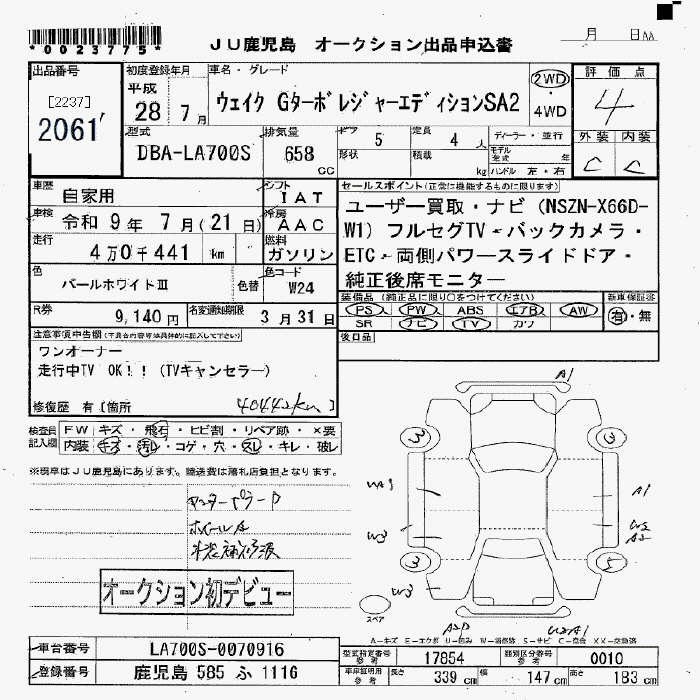 *0023775*
JU鹿児島 オークション出品申込書
月 日AA
出品番号
[2237]
2061
初度登録年月
平成
28 7月
車名・グレード
ウェイク GターボレジャーエディションSA2
2WD
4WD
評価点
4
外装 内装
C C
型式
DBA-LA700S
排気量
658
CC
ドア
5
形状
定員
4人
積載
kg
ディーラー・並行
モデル年式 年
ハンドル 左・右
車歴
自家用
シフト
IAT
車検
令和 9年 7月(21日)
冷房
AAC
走行
4万0千441 km
燃料
ガソリン
色
パールホワイトIII
色替
色コード
W24
R券
9,140円
名変通知期限
3月31日
セールスポイント(正常に機能するものに限ります)
ユーザー買取・ナビ(NSZN-X66D-
W1)フルセグTV・バックカメラ・
ETC・両側パワースライドドア・
純正後席モニター
装備品(純正品に限り○をつけてください)
新車保証書
PS PW ABS エアB AW
SR ナビ TV カワ
有・無
後日品
注意事項申告欄(不具合内容等は具体的に記入して下さい)
ワンオーナー
走行中TV OK!!(TVキャンセラー)
修復歴 有[箇所 ]
40442km
検査員
記入欄
FW キズ・飛石・ヒビ割・リペア跡・×要
内装 キズ・汚れ・コゲ・穴・スレ・キレ・破レ
※現車はJU鹿児島にあります。陸送費は落札店負担となります。
ホイールA
オークション初デビュー
A1
3 3
WA1
A1
W3
W2
A2
3 5
W3
スペア
A2
W2A1
A-キズ E-エクボ U-凹み W-補修跡 S-サビ C-腐食 XX-交換済
車台番号
LA700S-0070916
登録番号
鹿児島 585 ふ 1116
型式指定番号
参考
17854
類別区分番号
参考
0010
車庫証明用
参考
長さ 339cm
幅 147cm
高さ 183cm